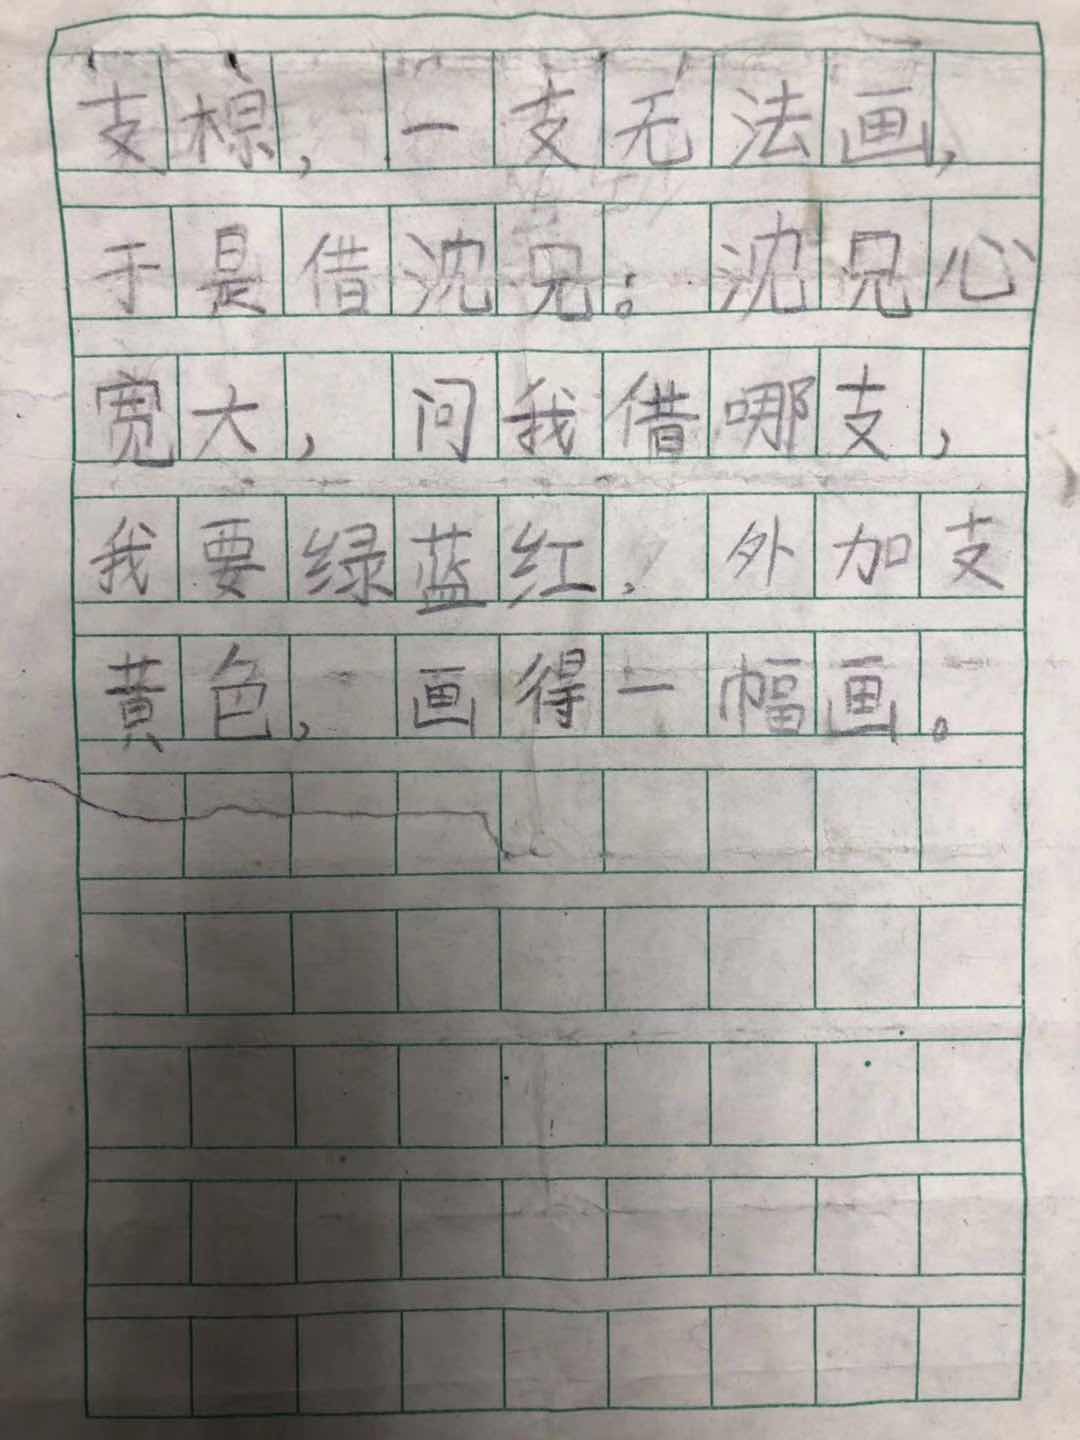 支棕，一支无法画，
于是借沈兄；沈兄心
宽大，问我借哪支，
我要绿蓝红，外加支
黄色，画得一幅画。